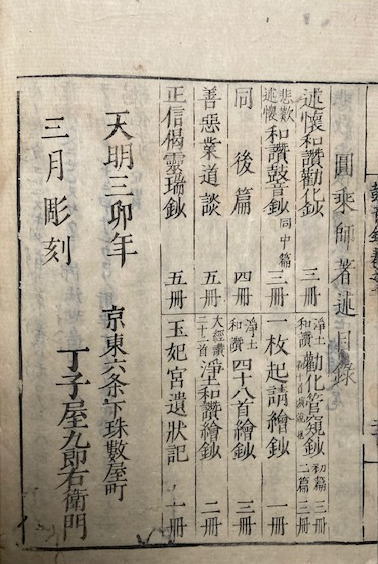 圓乘師著述目錄
述懷和讚勸化鈔 三冊
淨土和讚勸化管窺鈔 初篇三冊 二篇三冊
悲歎述懷和讚鼓音鈔 同中篇 三冊
一枚起請繪鈔 一冊
同後篇 四冊
淨土和讚四十八首繪鈔 三冊
善惡業道談 五冊
大經讚二十二首淨土和讚繪鈔 二冊
正信偈靈瑞鈔 五冊
玉妃宮遺狀記 一冊
天明三卯年
三月彫刻
京東六条下珠數屋町
丁子屋九郎右衛門